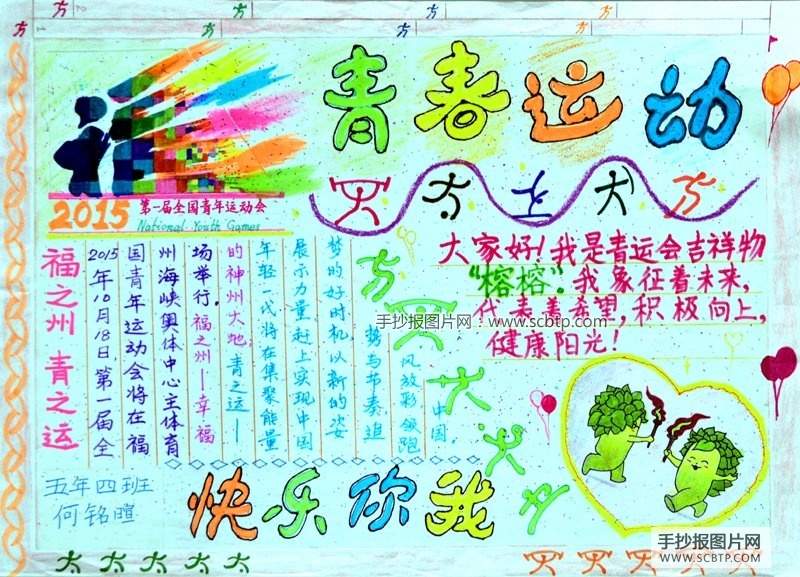 青春运动
2015
第一届全国青年运动会
National Youth Games
大家好!我是青运会吉祥物
“榕榕”。我象征着未来,
代表着希望,积极向上,
健康阳光!
福之州 青之运
2015年10月18日,第一届全
国青年运动会将在福
州海峡奥体中心主体育
场举行。福之州—幸福
的神州大地,青之运—
年轻一代将在集聚能量
展示力量,赶上实现中国
梦的好时机,以新的姿
势与节奏追
风放彩领跑
中国。
手抄报图片网:www.scbtp.com
五年四班
何铭暄
快乐你我
手抄报图片网
WWW.SCBTP.COM